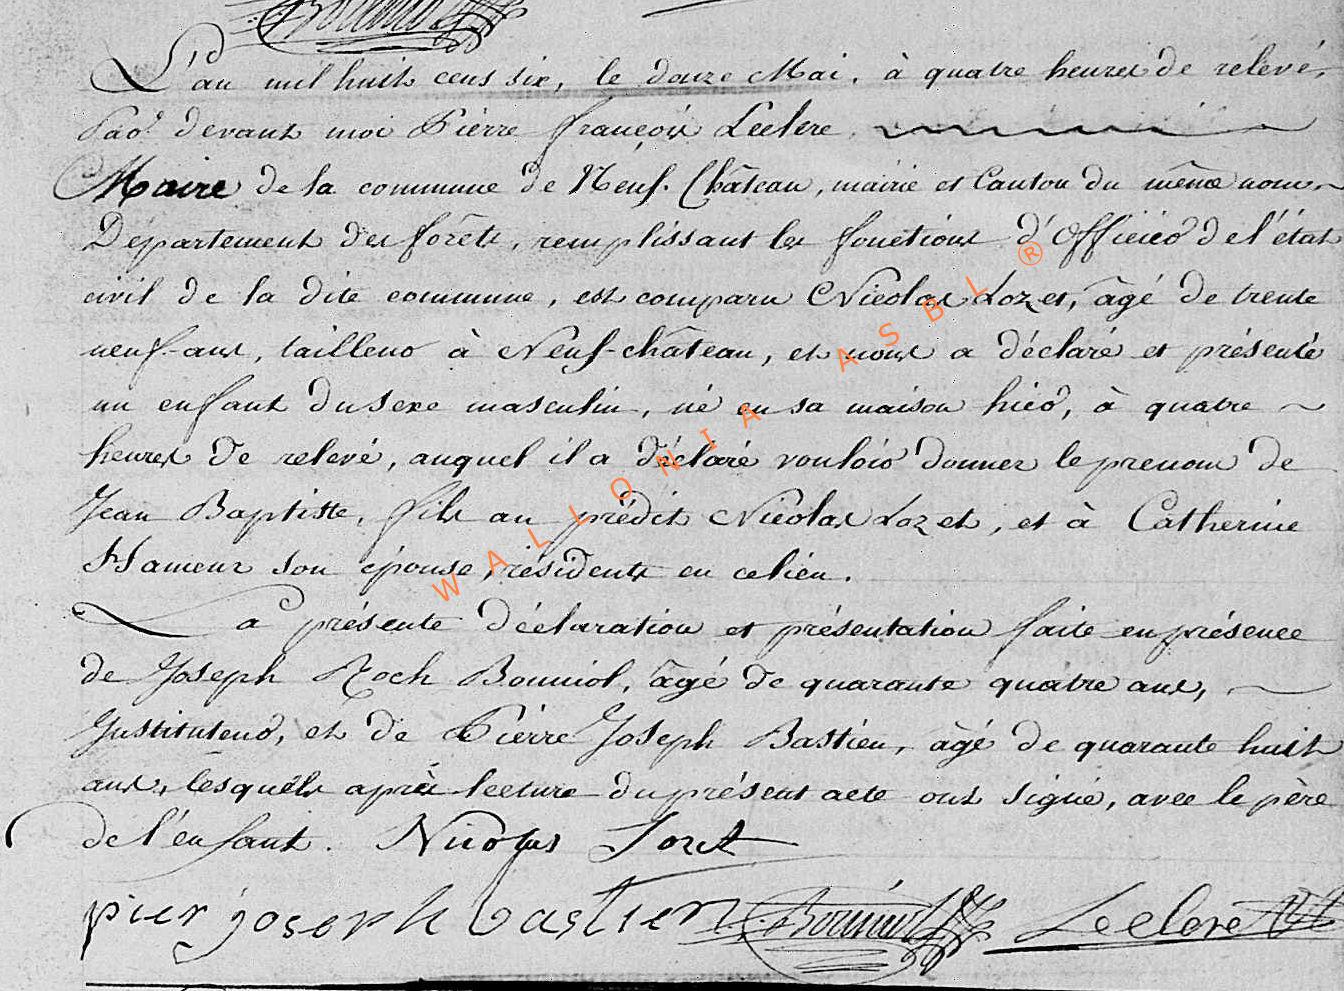 L'an mil huit cens six, le douze Mai, à quatre heures de relevé,
Par devant moi Pièrre françois Leclere
Maire de la commune de Neuf-Château, mairie et Canton du même nom,
Département des forêts, remplissant les fonctions d'Officier de l'état
civil de la dite commune, est comparu Nicolas Lozet, âgé de trente
neuf ans, tailleur à Neuf-château, et nous a déclaré et présenté
un enfant du sexe masculin, né en sa maison hier, à quatre
heures de relevé, auquel il a déclaré vouloir donner le prenom de
Jean Baptiste, fils au prédit Nicolas Lozet, et à Catherine
Hameur son épouse, résidents en ce lieu.
La présente déclaration et présentation faite en présence
de Joseph Roch Bouniol, âgé de quarante quatre ans,
Instituteur, et de Pièrre Joseph Bastien, âgé de quarante huit
ans, lesquels après lecture du présent acte ont signé, avec le père
de l'enfant. Nicolas Lozet
pier joseph bastien Bouniol Leclere
WALLONIA ASBL ®